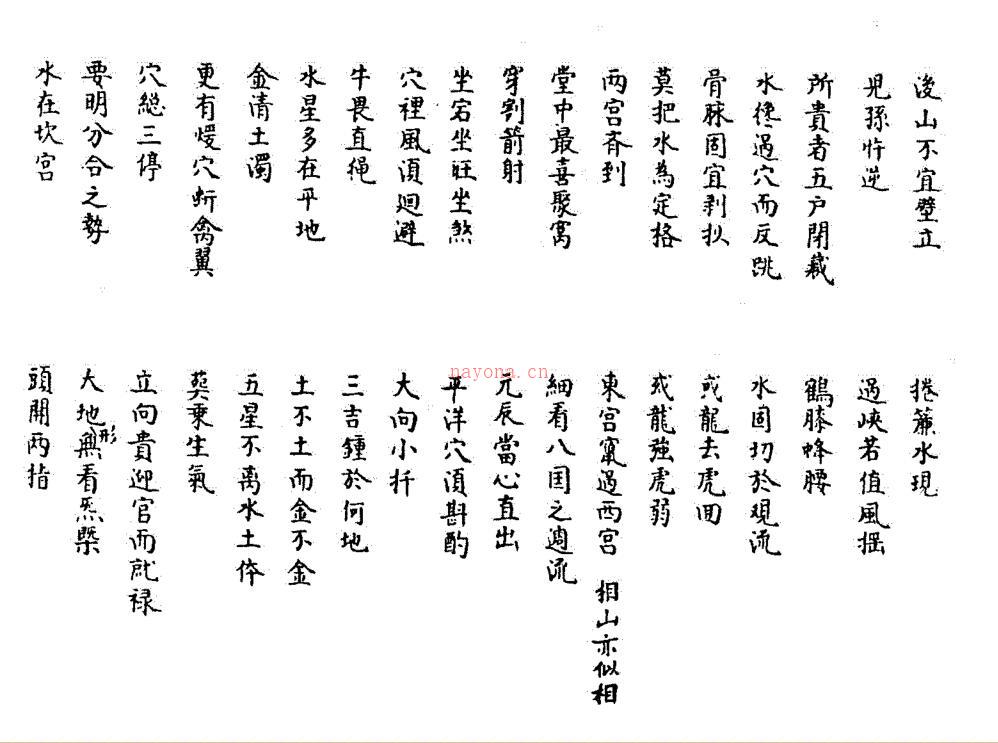 後山不宜壁立
捲簾水現
兒孫忤逆
過峽若值風揺
所貴者五户閉藏
鶴膝蜂腰
水纔過穴而反跳
水固切於观流
骨脉固宜剥换
或龍去虎回
莫把水為定格
或龍強虎弱
两宫齐到
東宫竄過西宫 相山亦似相
堂中最喜聚窩
細看八国之週流
穿割箭射
元辰當心直出
坐宕坐旺坐煞
平洋穴須斟酌
穴裡風須廻避
大向小扦
牛畏直繩
三吉鍾於何地
水星多在平地
土不土而金不金
金清土濁
五星不离水土体
更有煖穴斬禽翼
葬乘生氣
穴総三停
立向貴迎官而就禄
要明分合之勢
大地無形看炁槩
水在坎宫
頭開两指
nayona.cn